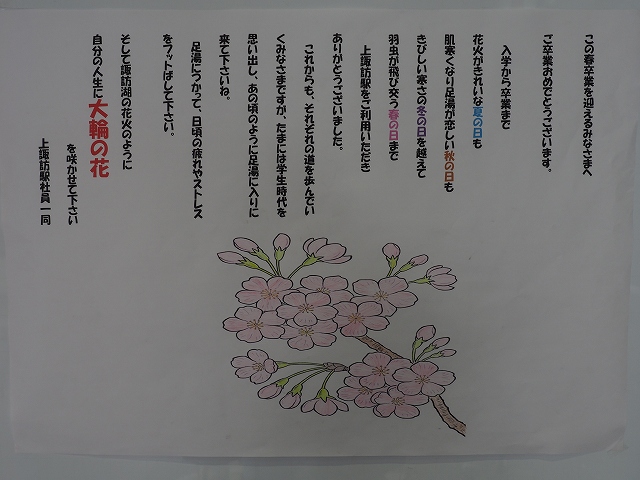 この春卒業を迎えるみなさまへ
ご卒業おめでとうございます。
入学から卒業まで
花火がきれいな夏の日も
肌寒くなり足湯が恋しい秋の日も
きびしい寒さの冬の日を越えて
羽虫が飛び交う春の日まで
上諏訪駅をご利用いただき
ありがとうございました。
これからも、それぞれの道を歩んでい
くみなさまですが、たまには学生時代を
思い出し、あの頃のように足湯に入りに
来て下さいね。
足湯につかって、日頃の疲れやストレス
をフットばして下さい。
そして諏訪湖の花火のように
自分の人生に大輪の花
を咲かせて下さい
上諏訪駅社員一同